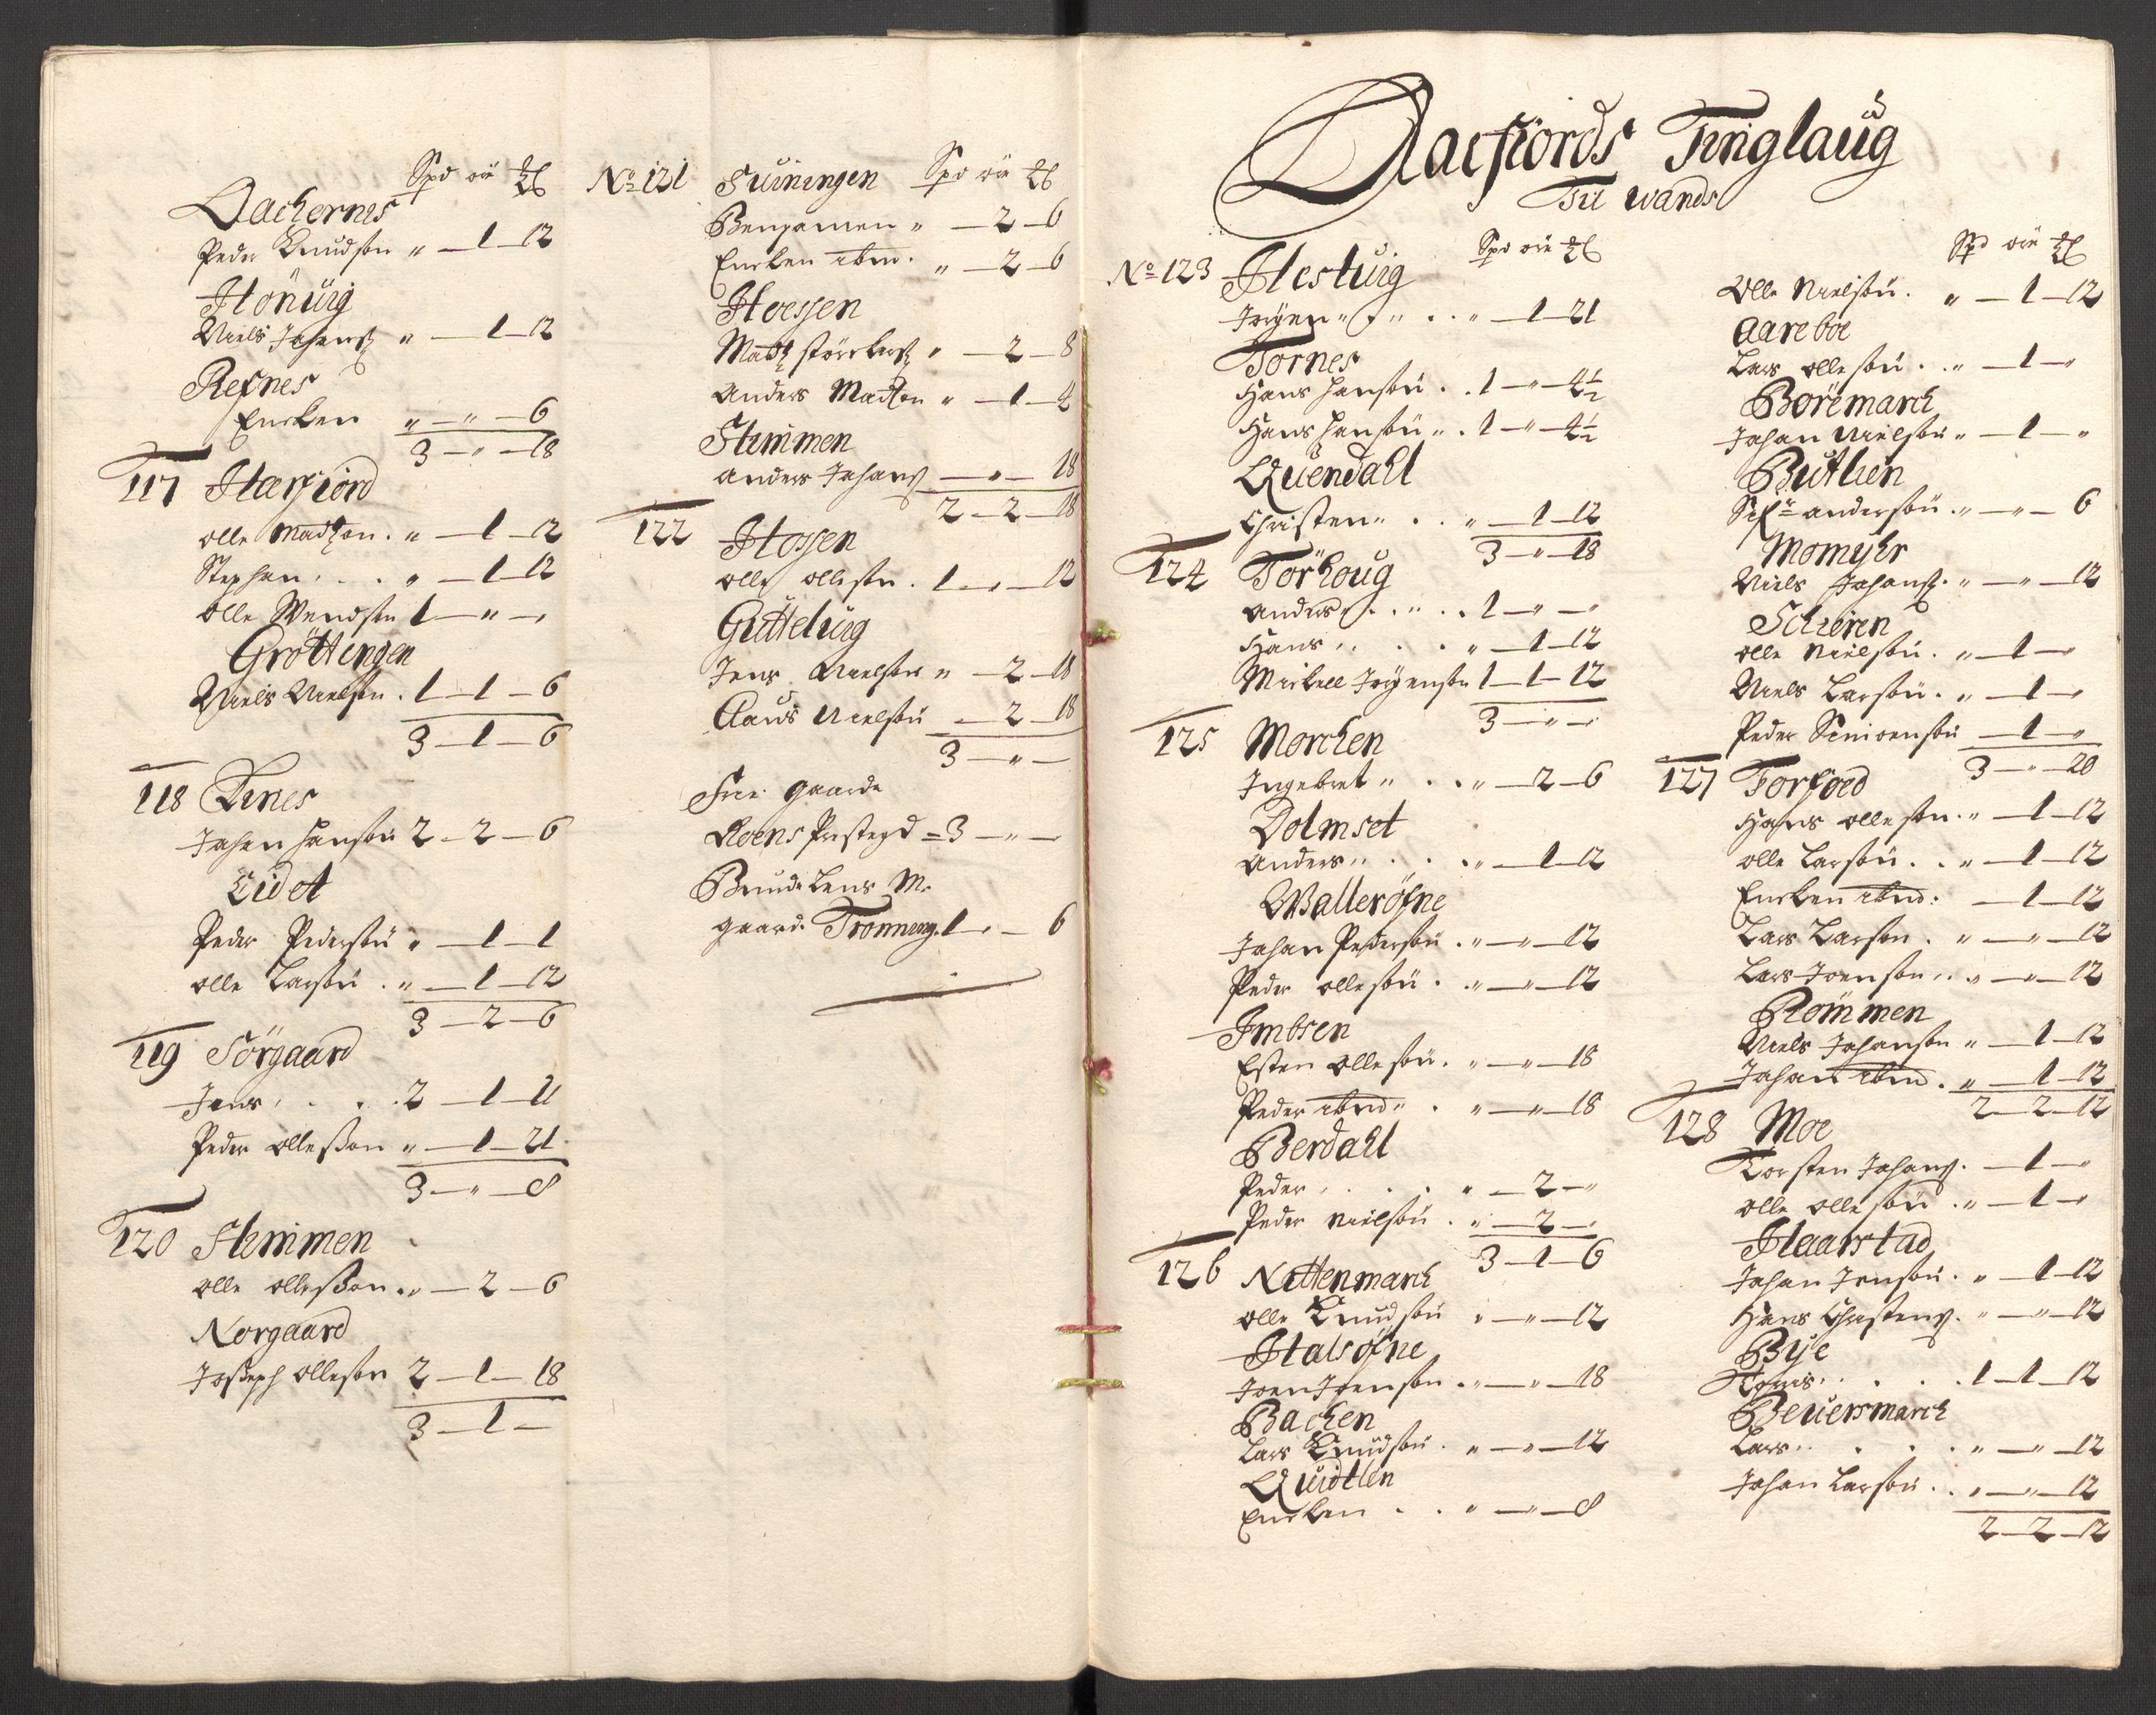 Spd øre
Qachernes
Peder Knudsøn " — 1 — 12
Hönüig
Niels Johans " — 1 — 12
Refnes
Encken " — " — 6
3 — " — 18
117 Harfiord
Olle Madtzøn . " — 1 — 12
Stephen . . . " — 1 — 12
Olle Wendsøn 1 — " — "
Gröttingen
Niels Nielsøn . 1 — 1 — 6
3 — 1 — 6
118 Lines
Johan Hansøn 2 — 2 — 6
Eidet
Peder Pedersøn " — 1 — 1
Olle Larsøn . " — 1 — 12
3 — 2 — 6
119 Sörgaard
Jens . . . . 2 — 1 — 11
Peder Olleßøn " — 1 — 21
3 — " — 8
120 Stemmen
Olle Olleßøn . " — 2 — 6
Norgaard
Joseph Ollesøn 2 — 1 — 18
3 — 1 —
No 121 Suiningen Spd øre
Bengamen " — 2 — 6
Encken ibm. " — 2 — 6
Hoessen
Madtz Störckers " — 2 — 8
Anders Madtzøn " — 1 — 4
Stemmen
Anders Johans — " — 18
2 — 2 — 18
122 Hossen
Olle Ollesøn . 1 — " — 12
Guttelüig
Jens Nielsøn " — 2 — 18
Claus Nielsøn — 2 — 18
3 — " —
Frie gaarde
Roens Prestegd = 3 — " —
Bunde Lens M.
gaard. Tronning. 1 — " — 6
Aaefiords Tinglaüg
Til Wands
Spd øre
No 123 Hestüig
Jörgen " . . . " — 1 — 21
Tornes
Hans Hansøn . . 1 — " — 4½
Hans Hansøn " . 1 — " — 4½
Quendahl
Christen " . . " — 1 — 12
3 — " — 18
124 Törhoug
Anders . . " . . 1 — " — "
Hans " . . . " — 1 — 12
Mickell Jörgensøn 1 — 1 — 12
3 — " — "
125 Morchen
Ingebret " . . " — 2 — 6
Dolmset
Anders " . . . " — 1 — 12
Walleröfne
Johan Pedersøn . " — " — 12
Peder Ollesøn . . " — " — 12
Imbsen
Esten Ollesøn . " — " — 18
Peder ibm " . " — " — 18
Berdahl
Peder . . . . " — 2 — "
Peder Nielsøn . " — 2 — "
3 — 1 — 6
126 Nettenmarch
Olle Knudsøn " — " — 12
Halsöfne
Joen Joensøn . " — " — 18
Bachen
Lars Knudsøn . " — " — 12
Quidtlen
Encken . . " — " — 8
Spd øre
Olle Nielsøn . " — 1 — 12
Aareboe
Lars Ollesøn . . " — 1 — "
Böremarch
Johan Nielsøn " — 1 — "
Butlien
Andersøn . " — " — 6
Momyhr
Niels Johans. " — " — 12
Schieren
Olle Nielsøn . " — 1 — "
Niels Larsøn . " — 1 — "
Peder Simoensøn — 1 — "
3 — " — 20
127 Forfoed
Hans Ollesøn . " — 1 — 12
Olle Larsøn . . " — 1 — 12
Encken ibm : — 1 — 12
Lars Larsøn . " — " — 12
Lars Joensøn . . " — " — 12
Römmen
Niels Johansøn " — 1 — 12
Johan ibm . " — 1 — 12
2 — 2 — 12
128 Moe
Torsten Johans. — 1 — "
Olle Ollesøn . " — 1 — "
Haarstad
Johan Jensøn . " — 1 — 12
Hans Christens. " — " — 12
Bÿe
. . . . 1 — 1 — 12
Beuersmarch
Lars . . . . " — " — 12
Johan Larsøn . . " — " — 12
2 — 2 — 12